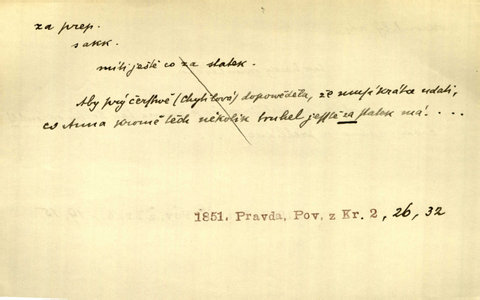 za prep.
s akk.
míti ještě co za statek.
Aby prý čerstvě (Chytilová) dopověděla, že musí krátce udati,
co Anna kromě těch několik truhel jeſſtě za statek má. . . .
1851. Pravda, Pov. z Kr. 2, 26, 32